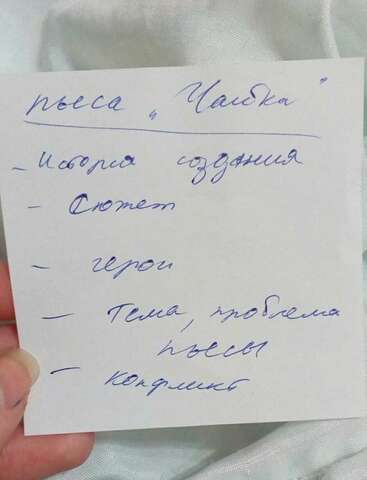 пьеса „Чайка"
- История создания
- Сюжет
- герои
- тема, проблема
пьесы
- конфликт